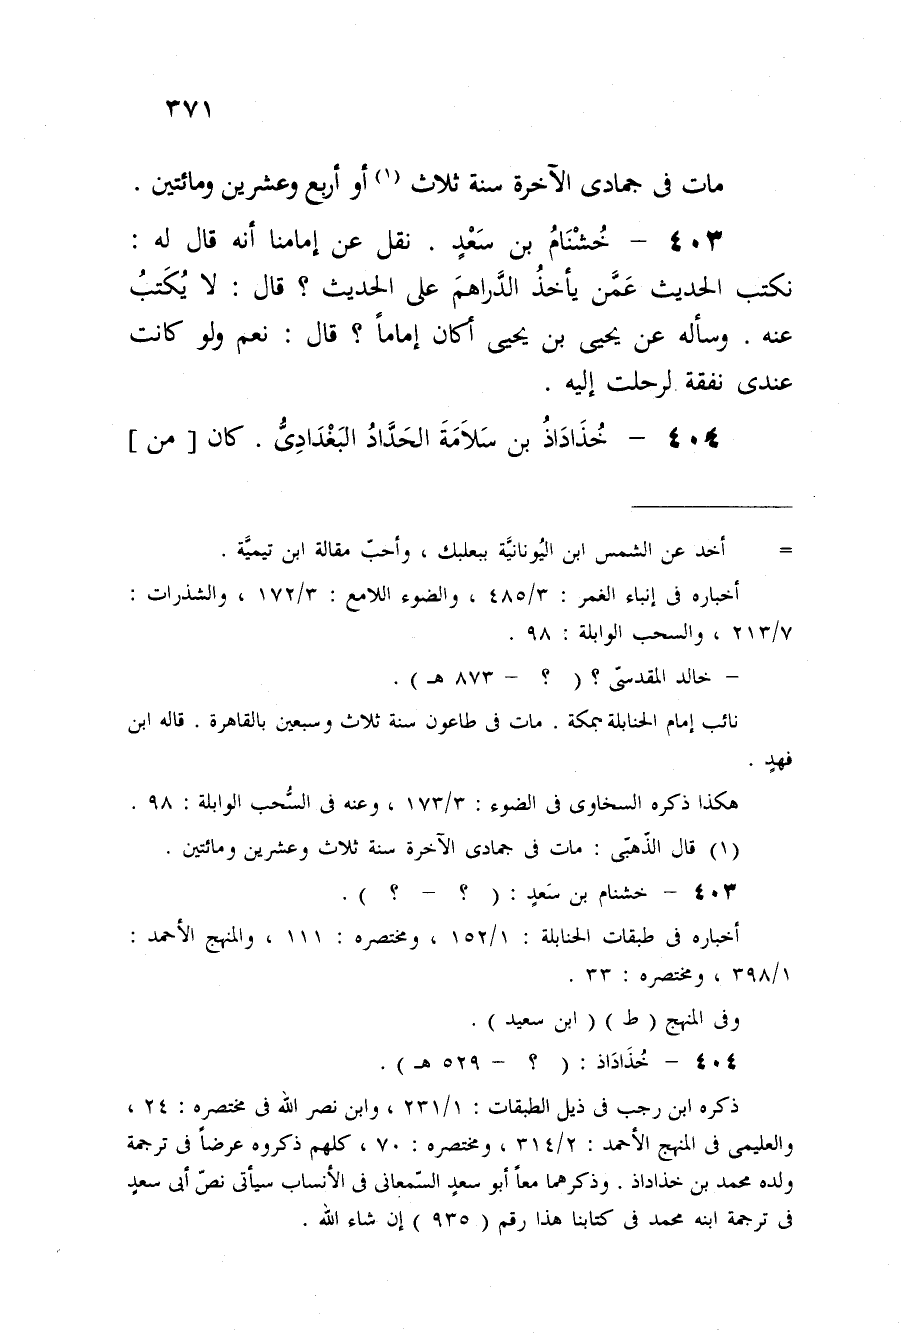 ٣٧١
مات فى جمادى الآخرة سنة ثلاث (١) أو أربع وعشرين ومائتين .
٤٠٣ – خُشْنَامُ بن سَعْدٍ . نقل عن إمامنا أنه قال له :
نكتب الحديث عَمَّن يأخذُ الدَّراهمَ على الحديث ؟ قال : لا يُكتَبُ
عنه . وسأله عن يحيى بن يحيى أكان إماماً ؟ قال : نعم ولو كانت
عندى نفقة لرحلت إليه .
٤٠٤ – خُذَادَاذُ بن سَلاَمَةَ الحَدَّادُ البَغْدَادِىُّ . كان [ من ]
= أخد عن الشمس ابن اليُونانيَّة ببعلبك ، وأحبّ مقالة ابن تيميَّة .
أخباره فى إنباء الغمر : ٤٨٥/٣ ، والضوء اللامع : ١٧٢/٣ ، والشذرات :
٢١٣/٧ ، والسحب الوابلة : ٩٨ .
– خالد المقدسىّ ؟ ( ؟ – ٨٧٣ هـ ) .
نائب إمام الحنابلة بمكة . مات فى طاعون سنة ثلاث وسبعين بالقاهرة . قاله ابن
فهدٍ .
هكذا ذكره السخاوى فى الضوء : ١٧٣/٣ ، وعنه فى السُّحب الوابلة : ٩٨ .
(١) قال الذّهبّى : مات فى جمادى الآخرة سنة ثلاث وعشرين ومائتين .
٤٠٣ – خشنام بن سَعدٍ : ( ؟ – ؟ ) .
أخباره فى طبقات الحنابلة : ١٥٢/١ ، ومختصره : ١١١ ، والمنهج الأحمد :
٣٩٨/١ ، ومختصره : ٣٣ .
وفى المنهج ( ط ) ( ابن سعيد ) .
٤٠٤ – خُذَادَاذ : ( ؟ – ٥٢٩ هـ ) .
ذكره ابن رجب فى ذيل الطبقات : ٢٣١/١ ، وابن نصر الله فى مختصره : ٢٤ ،
والعليمى فى المنهج الأحمد : ٣١٤/٢ ، ومختصره : ٧٠ ، كلهم ذكروه عرضاً فى ترجمة
ولده محمد بن خداداذ . وذكرهما معاً أبو سعدٍ السّمعانى فى الأنساب سيأتى نصّ أبى سعدٍ
فى ترجمة ابنه محمد فى كتابنا هذا رقم ( ٩٣٥ ) إن شاء الله .